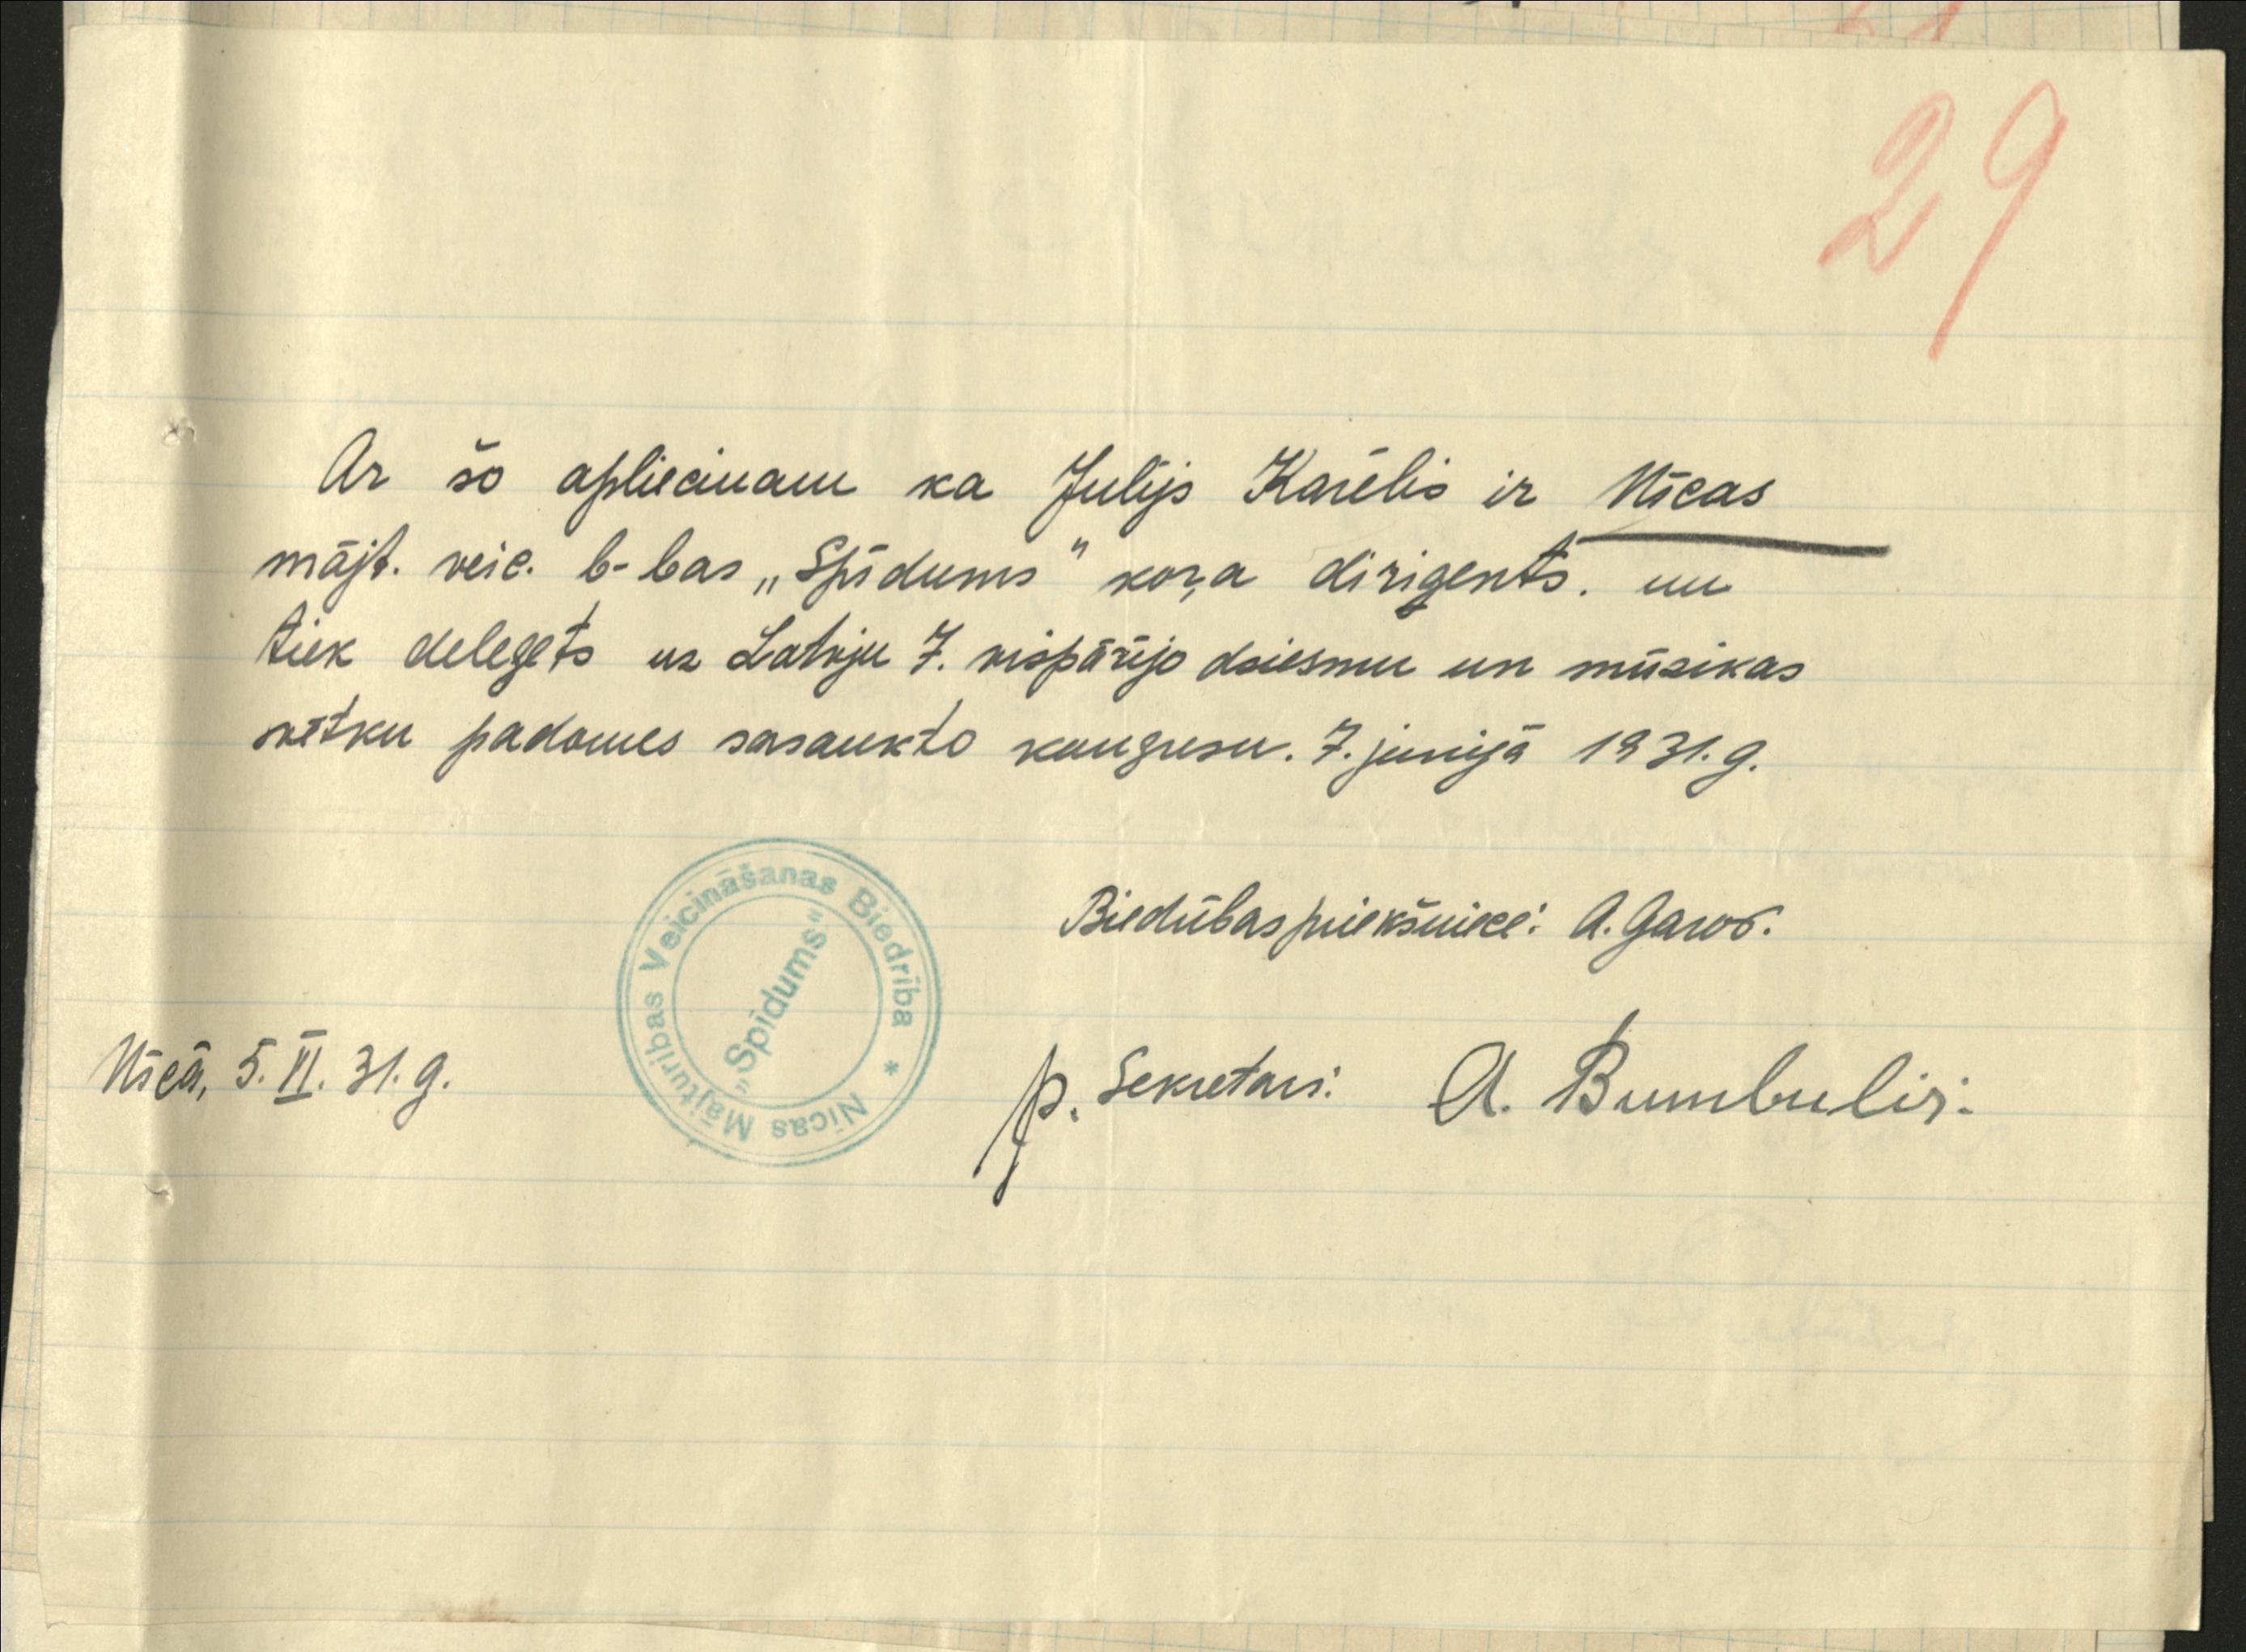 29
Ar šo apliecinam ka Julijs Karelis ir Nīcas
mājt. veic. b-bas „Spīdums" koŗa dirigents. un
tiek deleģets uz Latvju 7. vispārējo dziesmu un mūzikas
svētku padomes sasaukto kongresu. 7. junijā 1931. g.
Biedrības priekšniece: A. Garoz.
Nīcā, 5. VI. 31. g.
p. Sekretars: A. Bumbulis.
Nīcas Mājturības Veicināšanas Biedrība *
„Spīdums"